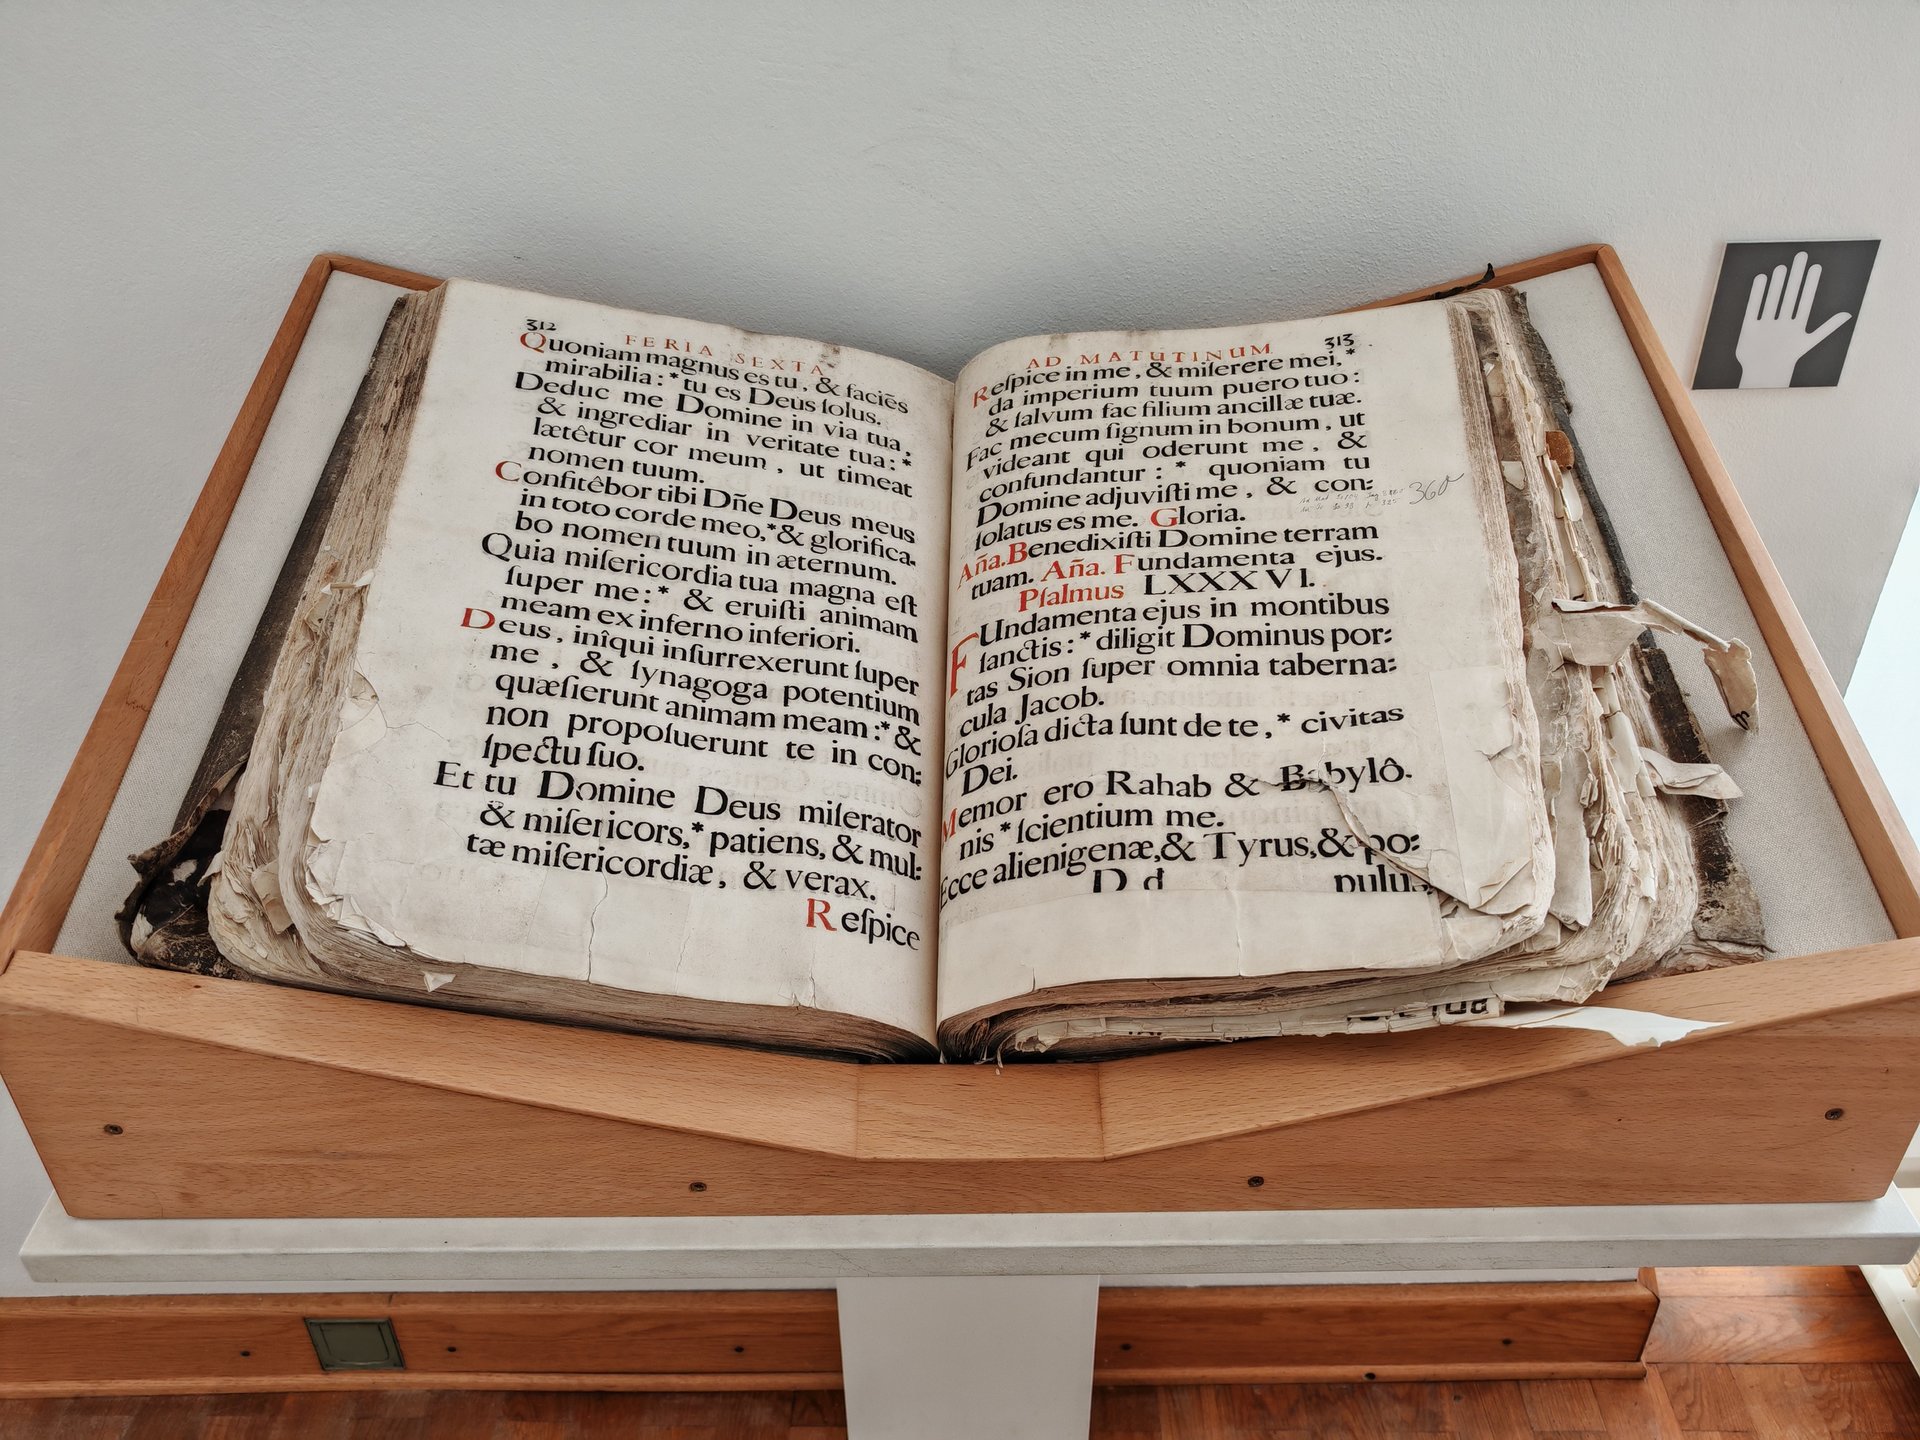 312
FERIA SEXTA
Quoniam magnus es tu, & faciẽs
mirabilia: * tu es Deus ſolus.
Deduc me Domine in via tua,
& ingrediar in veritate tua: *
lætêtur cor meum, ut timeat
nomen tuum.
Confitêbor tibi Dñe Deus meus
in toto corde meo, * & glorifica-
bo nomen tuum in æternum.
Quia miſericordia tua magna eſt
ſuper me: * & eruiſti animam
meam ex inferno inferiori.
Deus, inîqui inſurrexerunt ſuper
me, & ſynagoga potentium
quæſierunt animam meam: * &
non propoſuerunt te in con:
ſpectu ſuo.
Et tu Domine Deus miſerator
& miſericors, * patiens, & mul:
tæ miſericordiæ, & verax.
Reſpice
AD MATUTINUM
313
Reſpice in me, & miſerere mei, *
da imperium tuum puero tuo:
& ſalvum fac filium ancillæ tuæ.
Fac mecum ſignum in bonum, ut
videant qui oderunt me, &
confundantur: * quoniam tu
Domine adjuviſti me, & con:
ſolatus es me. Gloria.
360
Aña. Benedixiſti Domine terram
tuam. Aña. Fundamenta ejus.
Pſalmus LXXXVI.
FUndamenta ejus in montibus
ſanctis: * diligit Dominus por:
tas Sion ſuper omnia taberna:
cula Jacob.
Glorioſa dicta ſunt de te, * civitas
Dei.
Memor ero Rahab & Babylô.
nis * ſcientium me.
Ecce alienigenæ, & Tyrus, & po:
D d
pulus